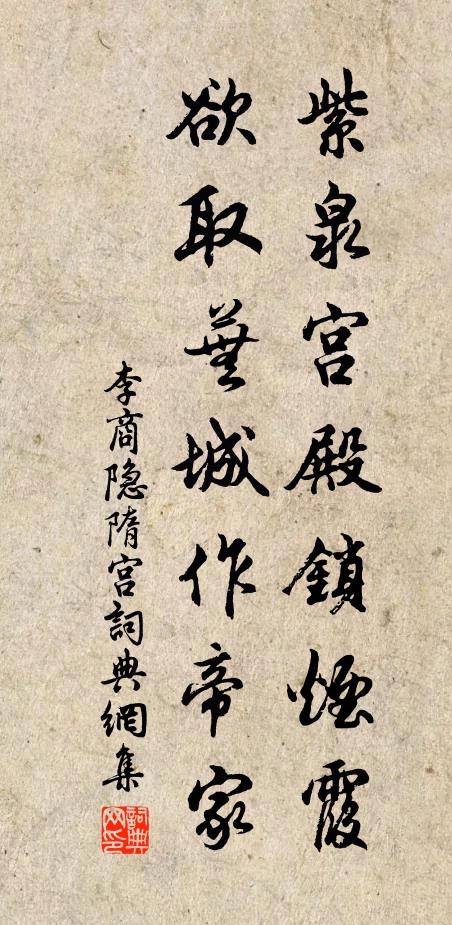 紫泉宫殿鎖煙霞
欲取蕪城作帝家
李商隐隋宫詞典網集
詞典网印